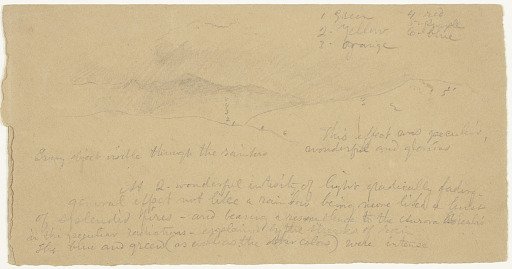 1 green 4 red
2 yellow 5 purple
3 orange 6 blue
This effect was peculiar,
Every object visible through the rainbow
wonderful and glorious
At 2 - wonderful intensity of light gradually fading -
general effect not like a rainbow being more like a
of splendid fires - and bearing a resemblance to the Aurora Borealis
in the peculiar radiations - by the
The blue and green (as well as the other colors) were intense